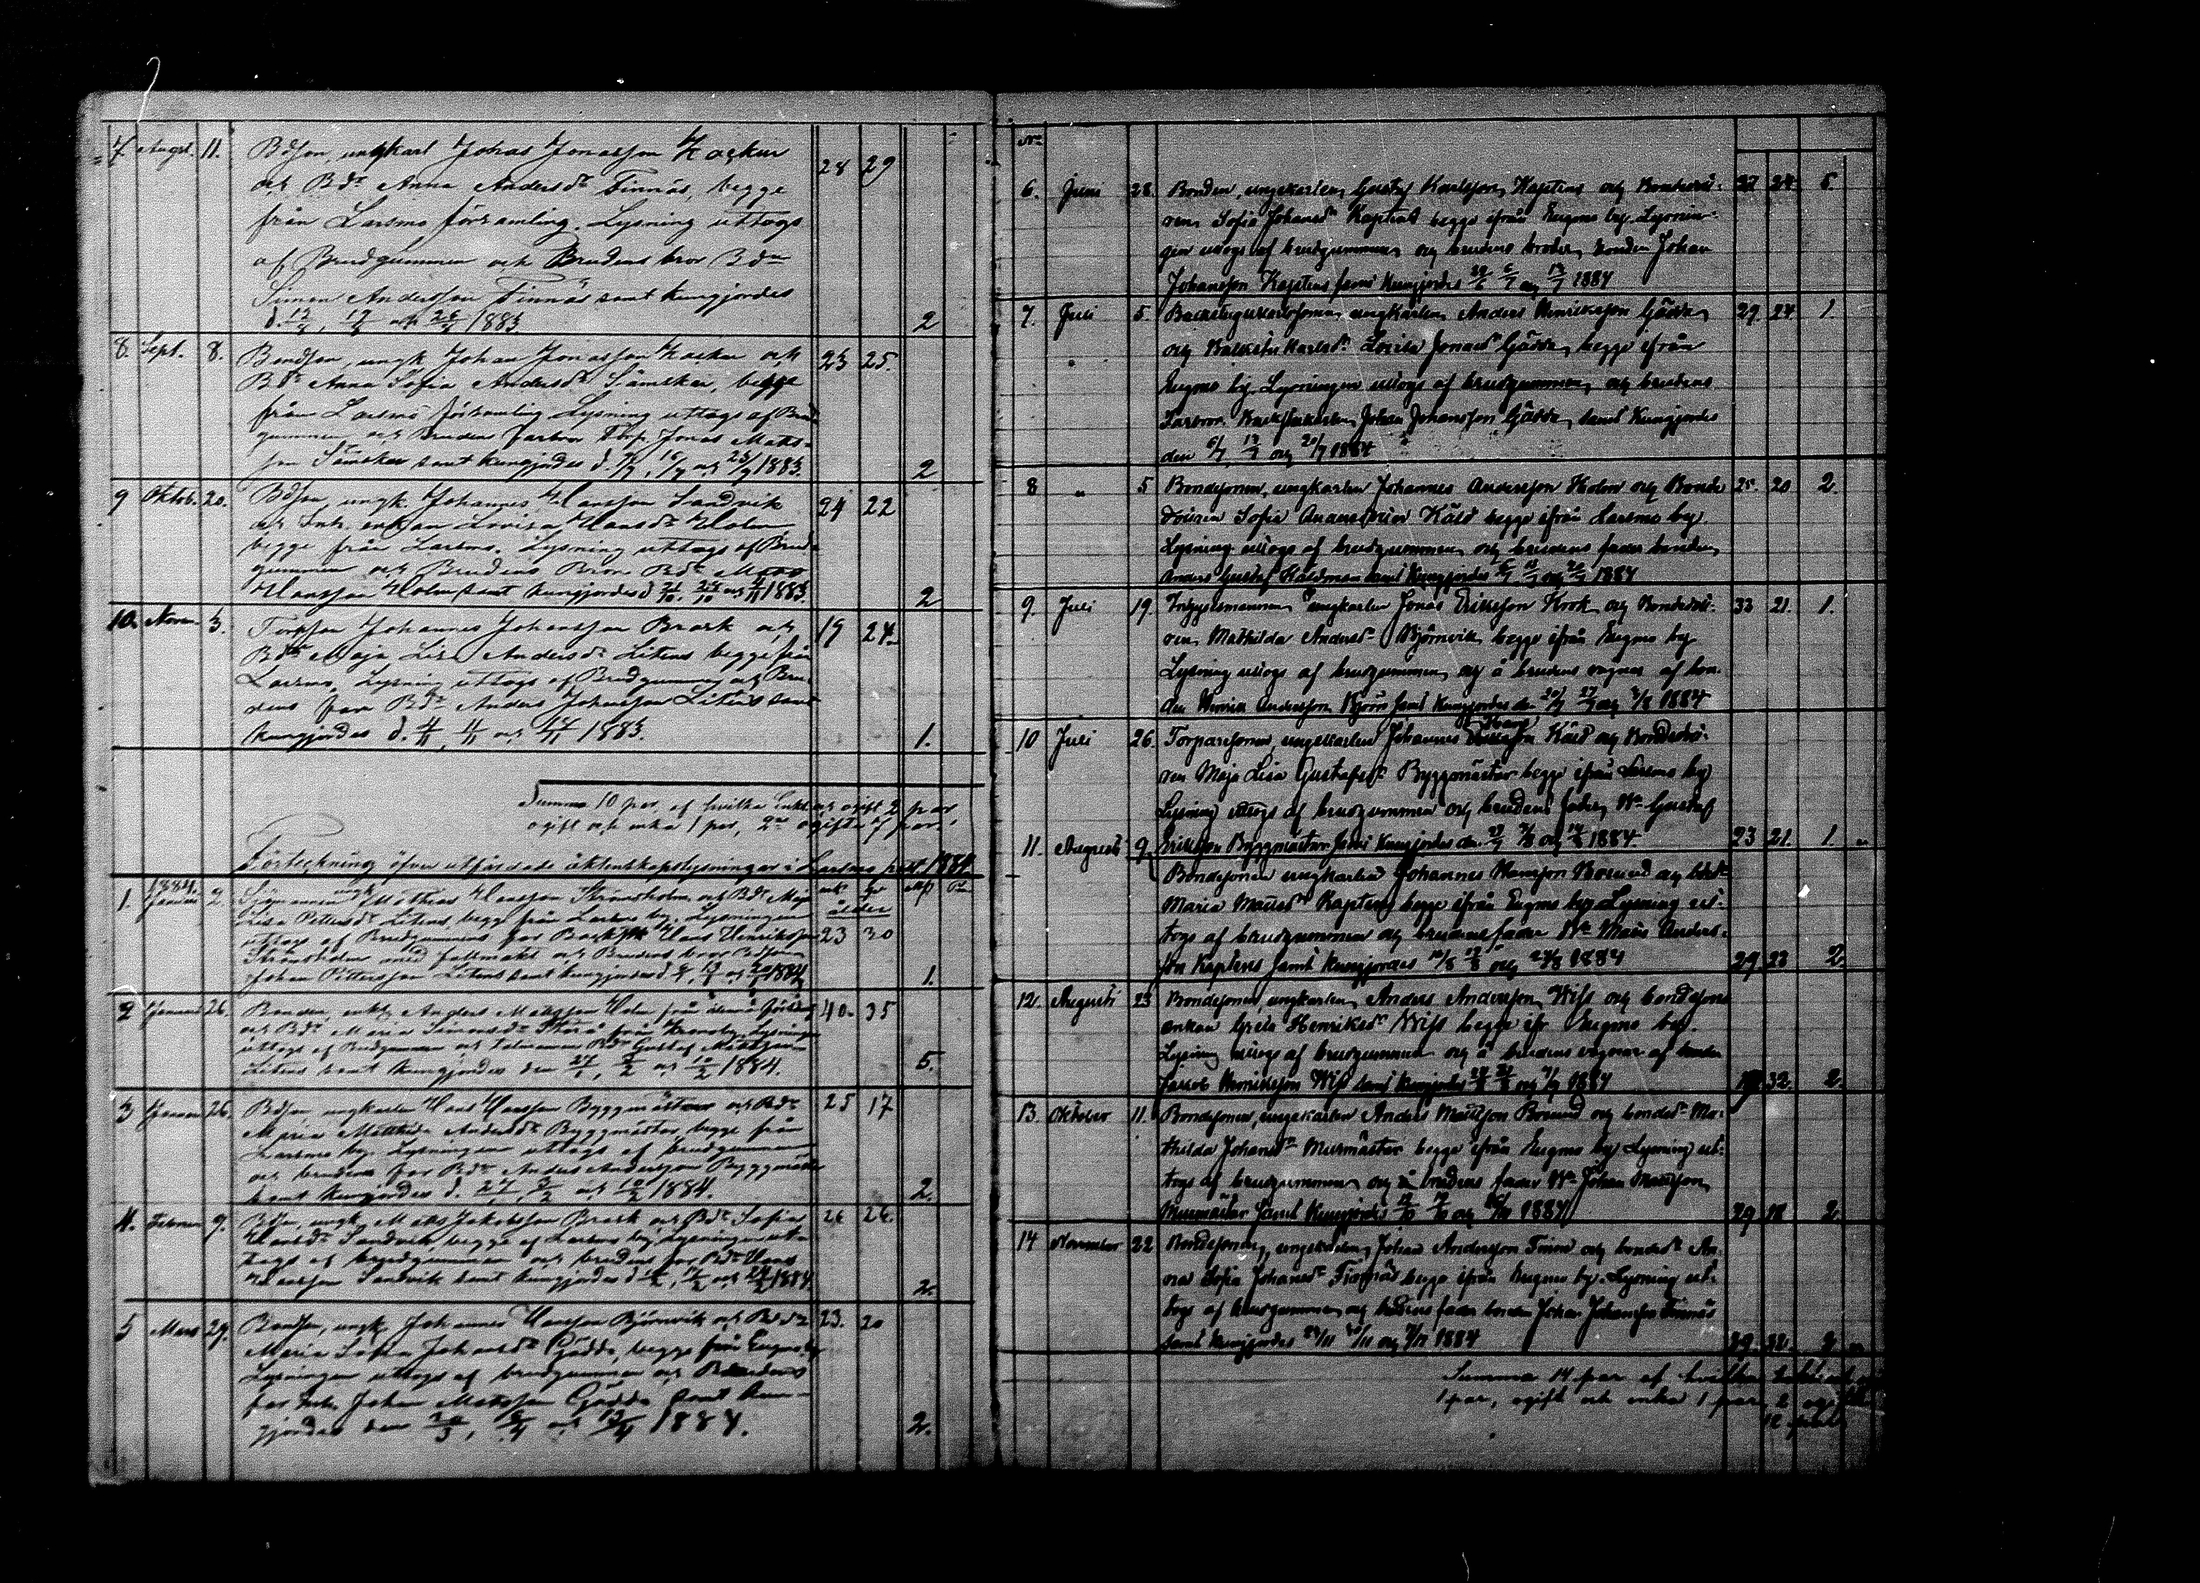 7. Augst. 11. Bdson, ungkarl Johas Jonasson 28 29
och Bdr Anna Andersdr Finnäs, begge
från Larsmo församling. Lysning uttogs
af Brudgummen och Brudens bror Bdn
Simon Andersson Finnäs samt kungjordes
d. 1883 2
8. Sept. 8. Bondson, ungk. Johan Jonasson och 23 25.
Bdr Anna Sofia Andersdr Sämskar, begge
från Larsmo församling Lysning uttogs af Brud-
gummen och Brudens farbror Torp. Jonas Mats-
son Sämskar samt kungjordes d. 9/9, 16/9 och 23/9 1883. 2
9 Oktob. 20. Bdson, ungk. Johannes Hansson Sandvik 24 22
och Inh. enkan Lovisa Hansdr Holm
begge från Larsmo. Lysning uttogs af Brud-
gummen och Brudens Bror Bdn Mats
Hansson Holm samt kungjordes d. 21/10, 28/10 och 4/11 1883. 2
10. Novem. 3. Torpson Johannes Johansson Brask och 19 24
Bdr Maja Lisa Andersdr Litens begge från
Larsmo. Lysning uttogs af Brudgummen och Bru-
dens far Bdn Anders Johansson Litens samt
kungjordes d. 4/11, 11/11 och 1883. 1.
Summa 10 par, af hvilka enkl. och ogift 2 par
ogift och enka 1 par, 2ne ogifta 7 par.
Förteckning öfver utfärdade äktenskapslysningar i Larsmo past. 1884.
1. 1884. Januari 2 Sjömannen ungk. Mathias Hansson Strömsholm och Bdr Maja
Lisa Pettersdr Litens, begge från Larsmo by. Lysningen ålder
uttogs af Brudgummens far Hans Henriksson 23 30
Strömsholm med fullmakt och Brudens bror Bdson
Johan Pettersson Litens samt kungjordes d. 1884 1.
2 Januari 26. Bonden, enkl. Anders Mattsson Holm från 40. 35
och Bdr Maria Simonsdr från Kronoby. Lysningen
uttogs af Brudgummen och Bdn Gustaf Mattsson
Litens samt kungjordes den 27/1, 3/2 och 10/2 1884. 5.
3 Januari 26. Bdson ungkarlen Hans Hansson Byggmästar och Bdr 25 17
Maria Mathilda Andersdr Byggmästar, begge från
Larsmo by. Lysningen uttogs af brudgummen
och brudens far Bdn Anders Andersson Byggmästar
samt kungjordes d. 27/1, 3/2 och 10/2 1884. 2.
4. Februari 9. Bdson, ungk. Matts Jakobsson Brask och Bdr Sofia 26 26.
Hansdr Sandvik, begge af Larsmo by. Lysningen ut-
togs af brudgummen och brudens far Bdn Hans
Hansson Sandvik samt kungjordes d. 10/2, 17/2 och 24/2 1884. 2.
5 Mars 29. Bondson, ungk. Johannes Hansson Björnvik och Bdr 23. 20
Maria Sofia Johansdr Gädda, begge från Eugmo by
Lysningen uttogs af brudgummen och Brudens
far Inh. Johan Matsson Gädda samt kun-
gjordes den 30/3, 6/4 och 13/4 1884. 2.
No
6. Juni 28. Bonden, ungkarlen Gustaf Karlsson Kaptens och Bondedot- 27 24 5.
tren Sofia Johansdr Kaptens begge ifrån Eugmo by. Lysnin-
gen uttogs af brudgummen och brudens broder, bonden Johan
Johansson Kaptens samt kungjordes 29/6 6/7 och 13/7 1884
7. Juli 5. ungkarlen Anders Henriksson Gädda 29. 24 1.
och Lovisa Jonasdr Gädda begge ifrån
Eugmo by. Lysningen uttogs af brudgummen och brudens
farbror Johan Johansson Gädda samt kungjordes
den 6/7 13/7 och 20/7 1884
8 " 5 Bondesonen, ungkarlen Johannes Andersson Holm och Bonde- 25. 20 2.
dottren Sofia Käld begge ifrån Larsmo by.
Lysning uttogs af brudgummen och brudens fader bonden
Anders Gustaf Käldman samt kungjordes 6/7 13/7 och 20/7 1884
9. Juli 19. Inhysesmannen ungkarlen Jonas Eriksson Krok och Bondedott- 33 21. 1.
ren Mathilda Andersdr Björnvik begge ifrån Eugmo by
Lysning uttogs af brudgummen och å brudens vägnar af bon-
den Henrik Andersson Björn samt kungjordes den 20/7 27/7 och 3/8 1884
10 Juli 26. Torparesonen, ungkarlen Johannes Käld och Bondedot-
ren Maja Lisa Gustafsdr Byggmästar begge ifrån Larsmo by
Lysning uttogs af brudgummen och brudens fader Bn Gustaf
Eriksson Byggmästar samt kungjordes den 27/7 3/8 och 10/8 1884. 23 21. 1
11. Augusti 9. Bondesonen ungkarlen Johannes Hansson Bosund och bdr
Maria Mattsdr Kaptens begge ifrån Eugmo by. Lysning ut-
togs af brudgummen och brudens fader Bn Matts Anders-
son Kaptens samt kungjordes 10/8 17/8 och 24/8 1884 29 23 2.
12. Augusti 23 Bondesonen, ungkarlen Anders Andersson Wiss och bondesons
enkan Greta Henriksdr Wiss begge ifr. Eugmo by.
Lysning uttogs af brudgummen och å brudens vägnar af bonden
Jakob Henriksson Wiss samt kungjordes 24/8 31/8 och 7/9 1884 32. 2.
13. Oktober 11. Bondesonen, ungkarlen Anders Mattsson Bosund och bondedr Ma-
thilda Johansdr Murmästar begge ifrån Eugmo by Lysning ut-
togs af brudgummen och brudens fader Bn Johan Mattsson
Murmästar samt kungjordes 12/10 19/10 och 1884 29 18 2.
14 November 22 Bondesonen, ungkarlen Johan Andersson Finne och bondedr An-
na Sofia Johansdr Finnäs begge ifrån Eugmo by. Lysning ut-
togs af brudgummen och brudens fader bonden Johan Johansson Finnäs
samt kungjordes 23/11 30/11 och 7/12 1884 29. 32.
Summa 14 par af hvilka
1 par, ogift och enka 1 par, 2
12 par